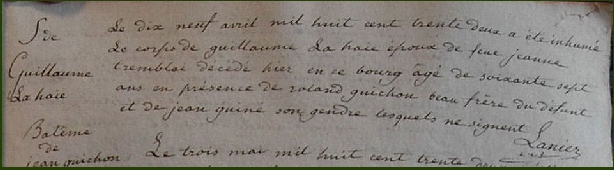 S de
Guillaume
La haie
Le dix neuf avril mil huit cent trente deux a été inhumé
le corps de guillaume La haie époux de feue jeanne
tremblai décédé hier en ce bourg âgé de soixante sept
ans en présence de roland guichon beau frère du défunt
et de jean guiné son gendre lesquels ne signent
Lanier
Batême
de
jean guichon
Le trois mai mil huit cent trente